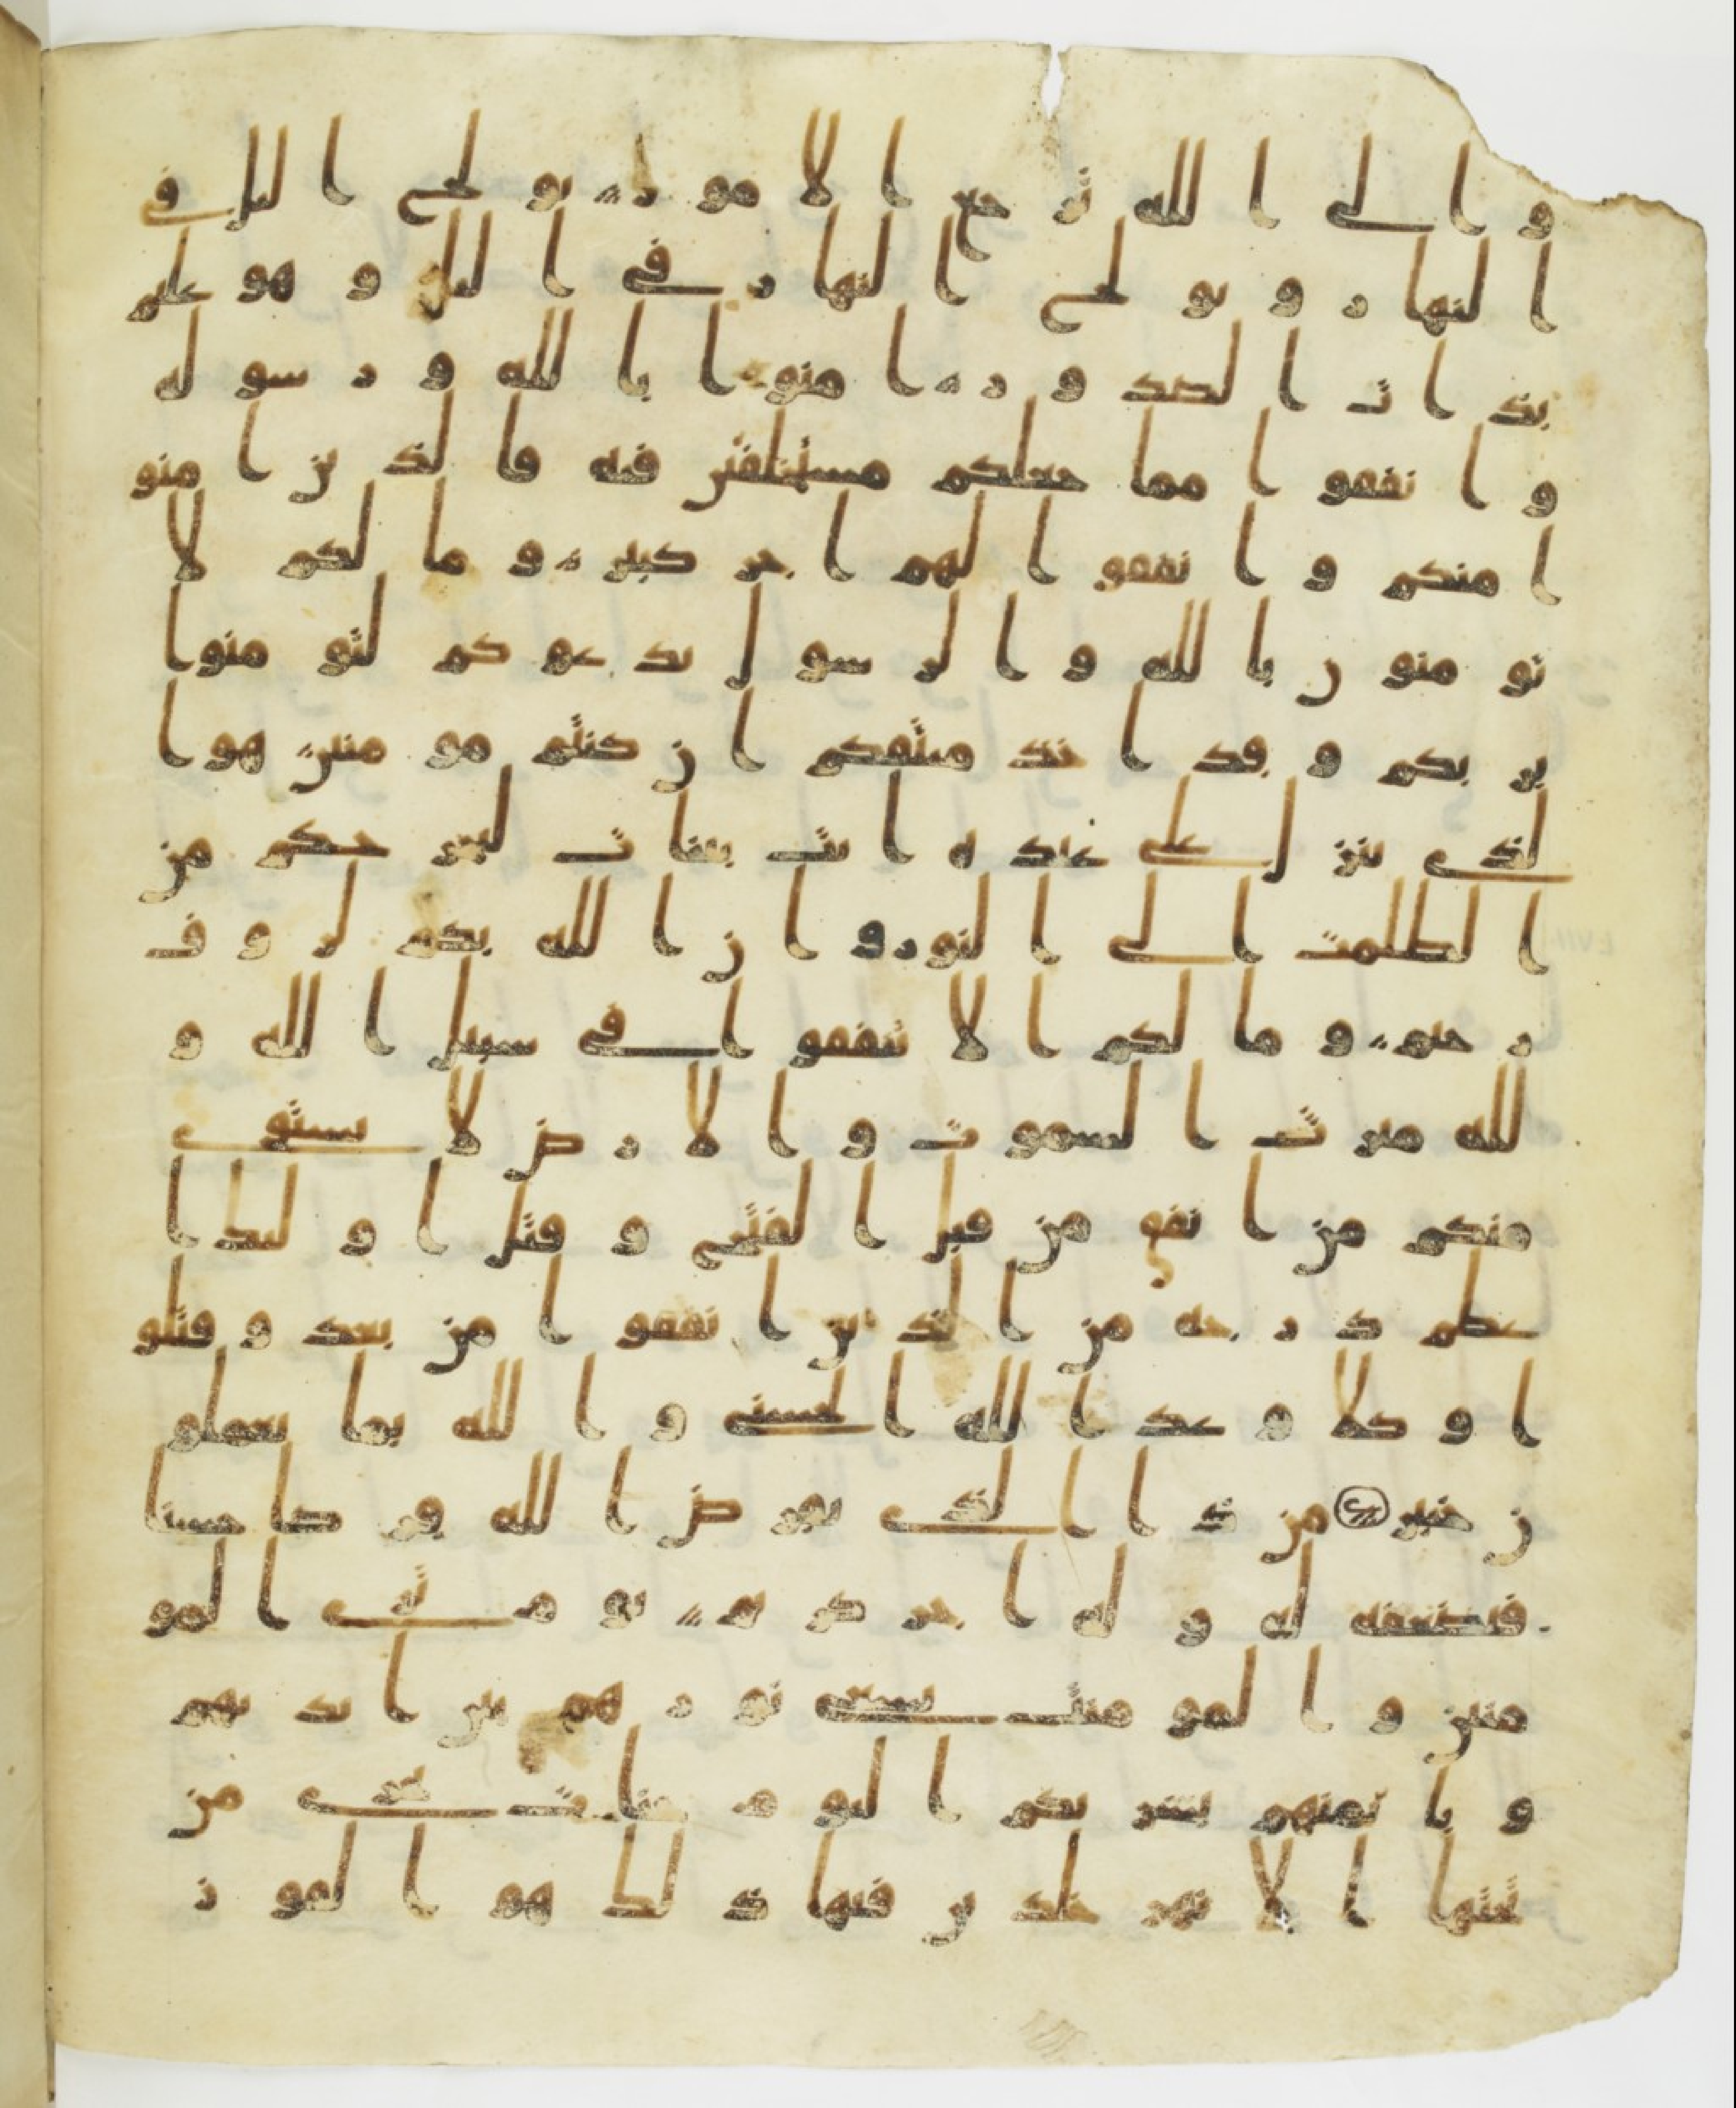 و الى الله ترجع الامور يولج اليل في
النهار و يولج النهار في اليل و هو عليم
بذات الصدور امنوا بالله و رسوله
و انفقوا مما جعلكم مستخلفين فيه فالذين امنو
ا منكم و انفقوا لهم اجر كبير و ما لكم لا
تومنون بالله و الرسول يدعوكم لتومنوا
بربكم و قد اخذ ميثقكم ان كنتم مومنين هو ا
لذي ينزل على عبده ايت بينات ليخرجكم من
الظلمت الى النور و ان الله بكم لروف
رحيم و ما لكم الا تنفقوا في سبيل الله و
لله ميرث السموت و الارض لا يستوي
منكم من انفق من قبل الفتح و قتل اوليك ا
عظم درجه من الذين انفقوا من بعد و قتلو
ا و كلا وعد الله الحسنى و الله بما تعملو
ن خبير من ذا الذي يقرض الله قرضا حسنا
فيضعفه له و له اجر كريم يوم ترى المو
منين و المومنت يسعى نورهم بين ايديهم
و بايمنهم بشريكم اليوم جنات تجري من
تحتها الانهر خلدين فيها ذلك هو الفوز